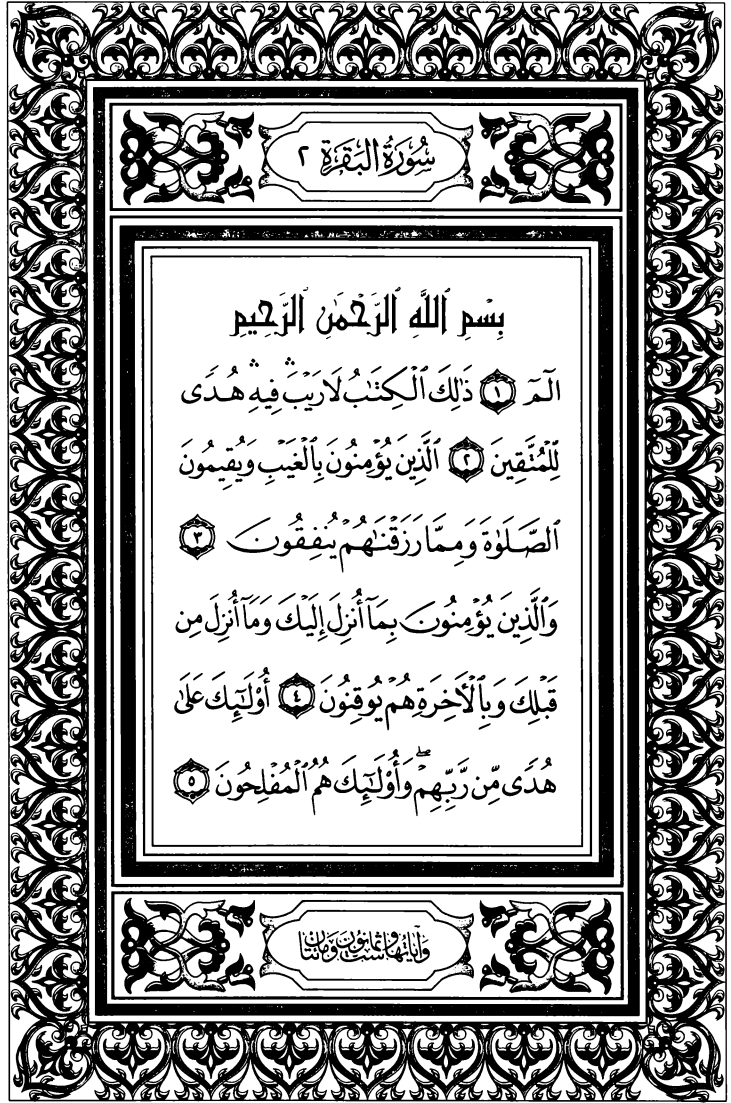 سُورَةُ البَقَرَةِ ٢
بِسْمِ ٱللَّهِ ٱلرَّحْمَٰنِ ٱلرَّحِيمِ
الٓمٓ ١ ذَٰلِكَ ٱلْكِتَٰبُ لَا رَيْبَ ۛ فِيهِ ۛ هُدًى
لِّلْمُتَّقِينَ ٢ ٱلَّذِينَ يُؤْمِنُونَ بِٱلْغَيْبِ وَيُقِيمُونَ
ٱلصَّلَوٰةَ وَمِمَّا رَزَقْنَٰهُمْ يُنفِقُونَ ٣
وَٱلَّذِينَ يُؤْمِنُونَ بِمَآ أُنزِلَ إِلَيْكَ وَمَآ أُنزِلَ مِن
قَبْلِكَ وَبِٱلْأَخِرَةِ هُمْ يُوقِنُونَ ٤ أُوْلَٰٓئِكَ عَلَىٰ
هُدًى مِّن رَّبِّهِمْ ۖ وَأُوْلَٰٓئِكَ هُمُ ٱلْمُفْلِحُونَ ٥
وَآيَاتُهَا سِتٌّ وَثَمَانُونَ وَمِائَتَانِ